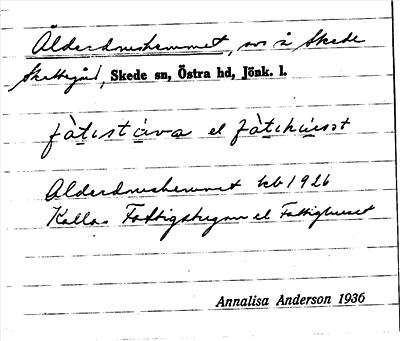 Ålderdomshemmet, sos å Skede
Skattegård, Skede sn, Östra hd, Jönk. l.
fàtistùva el fàtihùsət
Ålderdomshemmet hb 1926
Kallas Fattigstugan el Fattighuset
Annalisa Anderson 1936